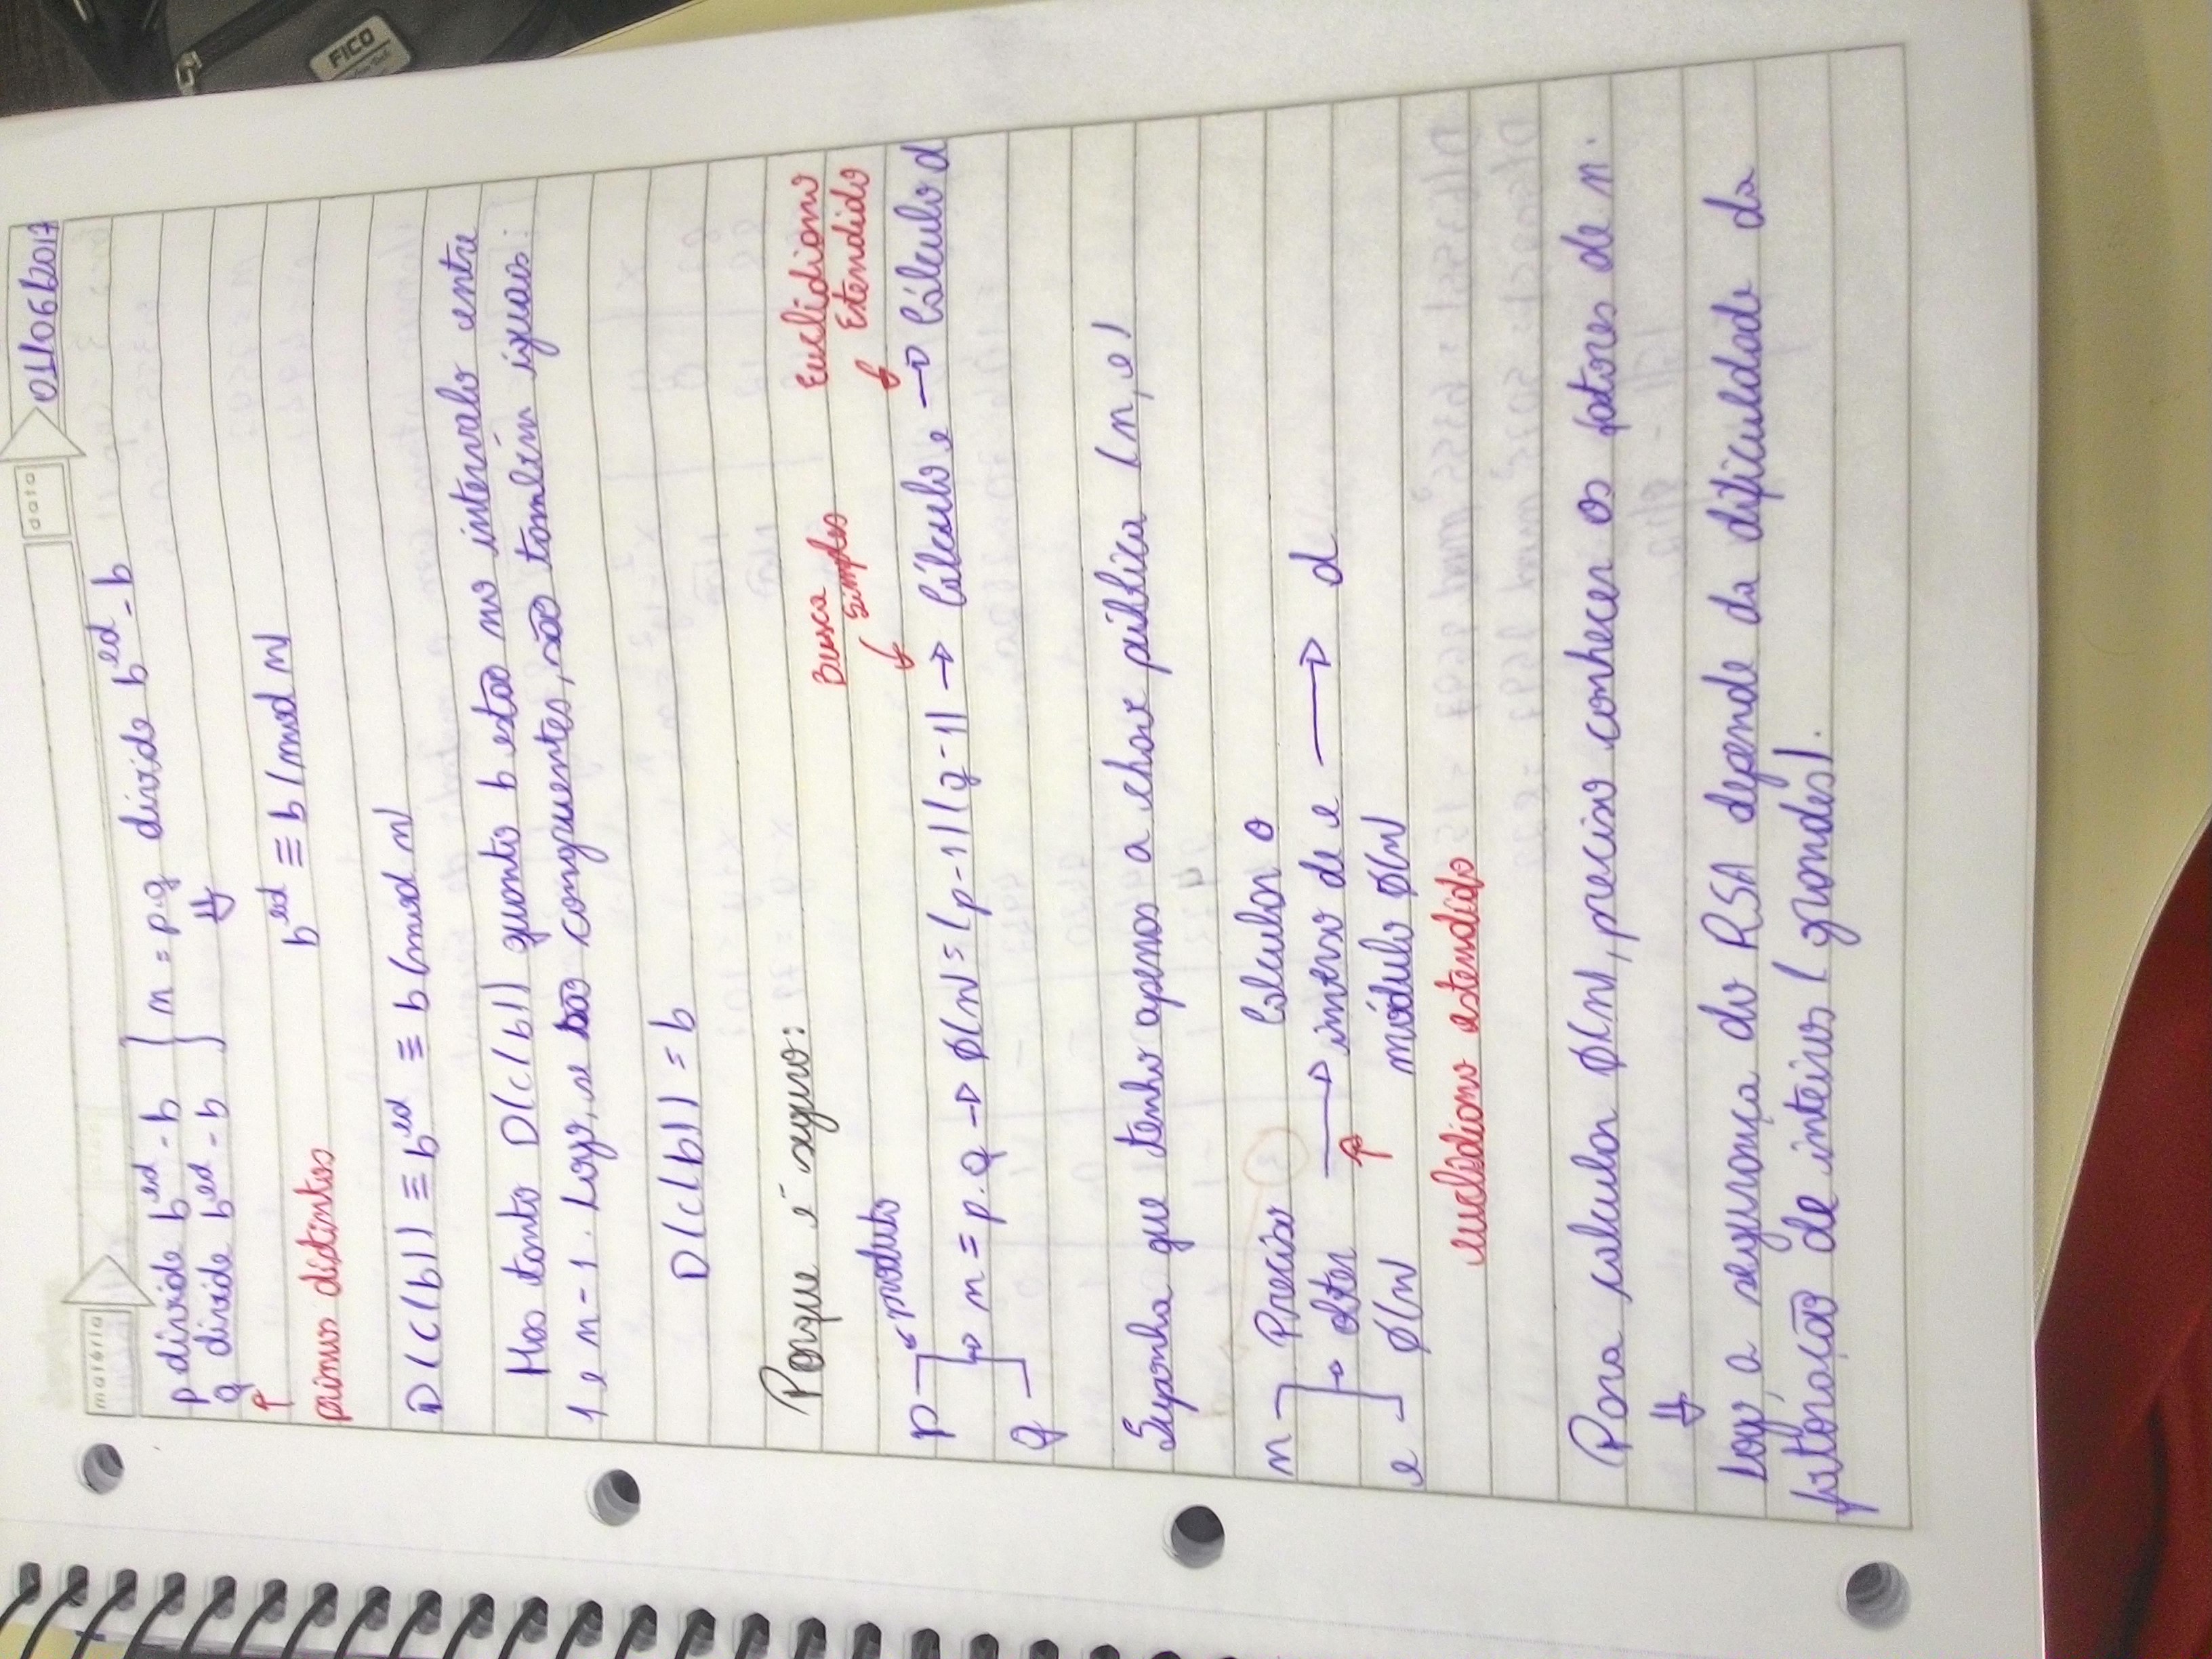 matéria
data
01/06/2017
p divide b^ed - b } n = p.q divide b^ed - b
q divide b^ed - b ⇓
↑
primos distintos
b^ed ≡ b (mod n)
D(C(b)) ≡ b^ed ≡ b (mod n)
Mas tanto D(C(b)) quanto b estão no intervalo entre
1 e n-1. Logo, se são congruentes, são também iguais:
D(C(b)) = b
Porque é seguro:
Busca
Simples
Euclidiano
Estendido
produto
p
n = p.q → φ(n) = (p-1)(q-1) → Cálculo e → Cálculo d
q
Suponha que tenho apenas a chave pública (n, e)
n Preciso Calcular o
obter → inverso de e → d
e φ(n) módulo φ(n)
euclidiano estendido
Para calcular φ(n), preciso conhecer os fatores de n.
⇓
Logo, a segurança do RSA depende da dificuldade da
fatoração de inteiros (grandes).
FICO